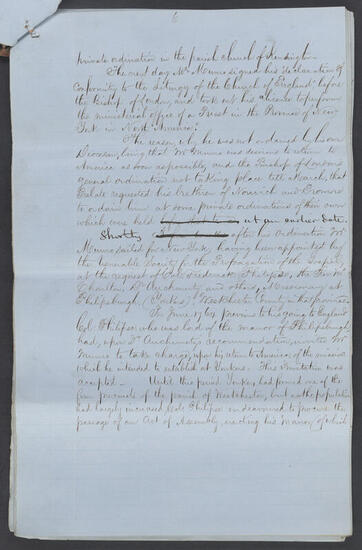 6
private ordination in the parish church of Kensington.
The next day Mr Munro signed his "declaration of
Conformity to the Liturgy of the Church of England" before
the Bishop of London and took out his license to perform
the ministerial office of a Priest in the Province of New
York in North America.
The reason why he was not ordained by his own
Diocesan, being that Mr Munro was desirous to return to
America as soon as possible, and the Bishop of London's
general ordination not taking place till March, that
Prelate requested his brethren of Norwich and
to ordain him at some private ordinations of their own
which were held at an earlier date.
Shortly after his Ordination Mr
Munro sailed for New York, having been appointed by
the venerable Society for the Propagation of the Gospel,
at the request of Col. Frederick Philipse, the Revd Mr
Charlton, Dr Auchmuty and others, Missionary at
Philipsburgh, (Yonkers) Westchester County in that province.
In June, previous to his going to England
Col. Philipse who was lord of the manor of Philipsburgh
had, upon Dr Auchmuty's recommendation, invited Mr
Munro to take charge, upon his return to America, of the mission
which he intended to establish at Yonkers. This invitation was
accepted. Until this period Yonkers had formed one of the
precincts of the parish of Westchester, but as the population
had largely increased Col. Philipse endeavoured to procure the
passage of an Act of Assembly erecting his Manor, of which